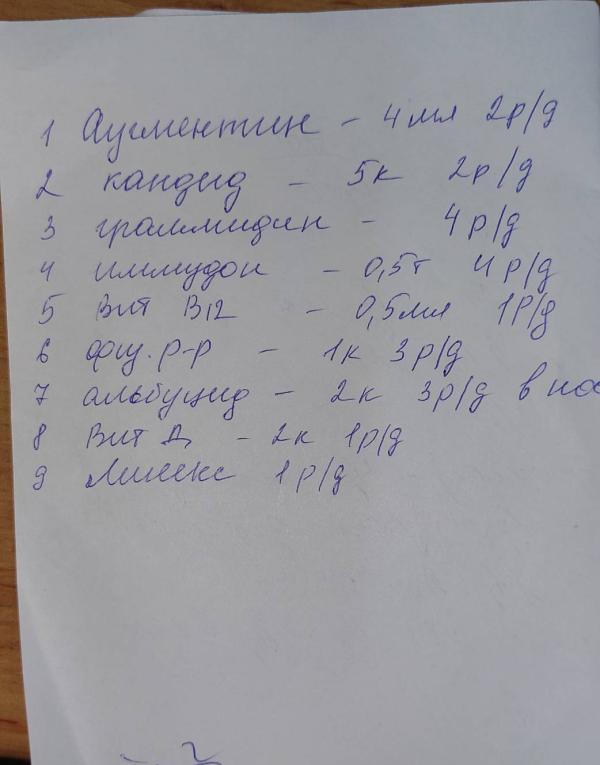 1 Аугментин – 4 мл 2р/д
2 кандид – 5к 2р/д
3 граммидин – 4р/д
4 иммудон – 0,5т 4р/д
5 Вит B12 – 0,5мл 1р/д
6 физ. р-р – 1к 3р/д
7 альбуцид – 2к 3р/д в нос
8 Вит Д – 2к 1р/д
9 Линекс 1р/д